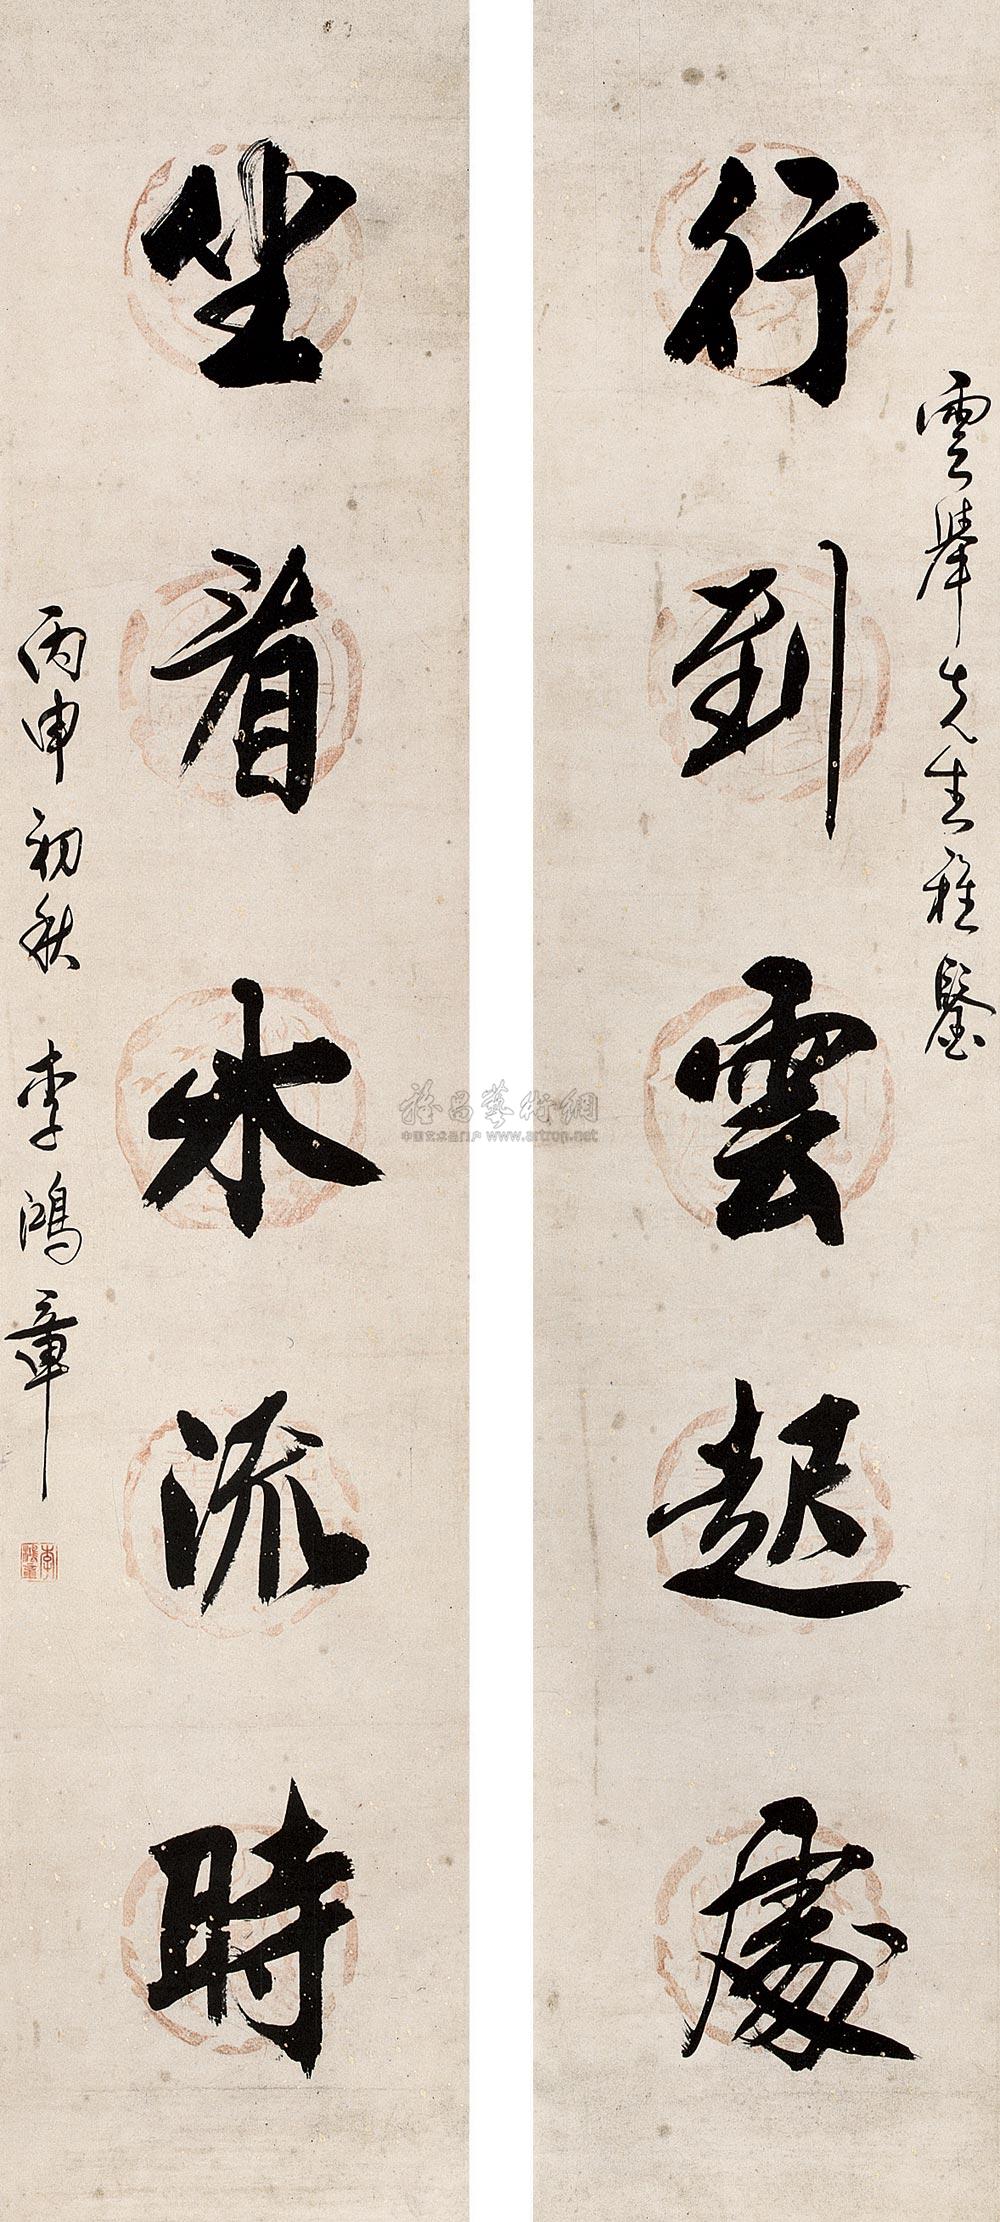 雲舉先生雅鑒
行到雲起處
坐看水流時
丙申初秋 李鴻章
李鴻章
雅昌藝術網
中国艺术品门户 www.artron.net